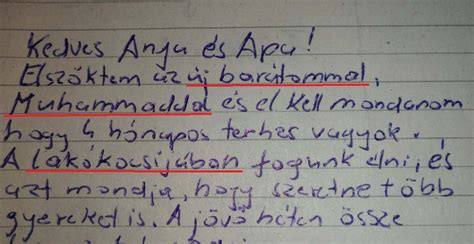 Kedves Anyu és Apu!
Elszöktem az új barátommal,
Muhammaddal és el kell mondanom
hogy 4 hónapos terhes vagyok.
A lakókocsijában fogunk élni, és
azt mondja, hogy szeretne több
gyereket is. A jövő héten össze